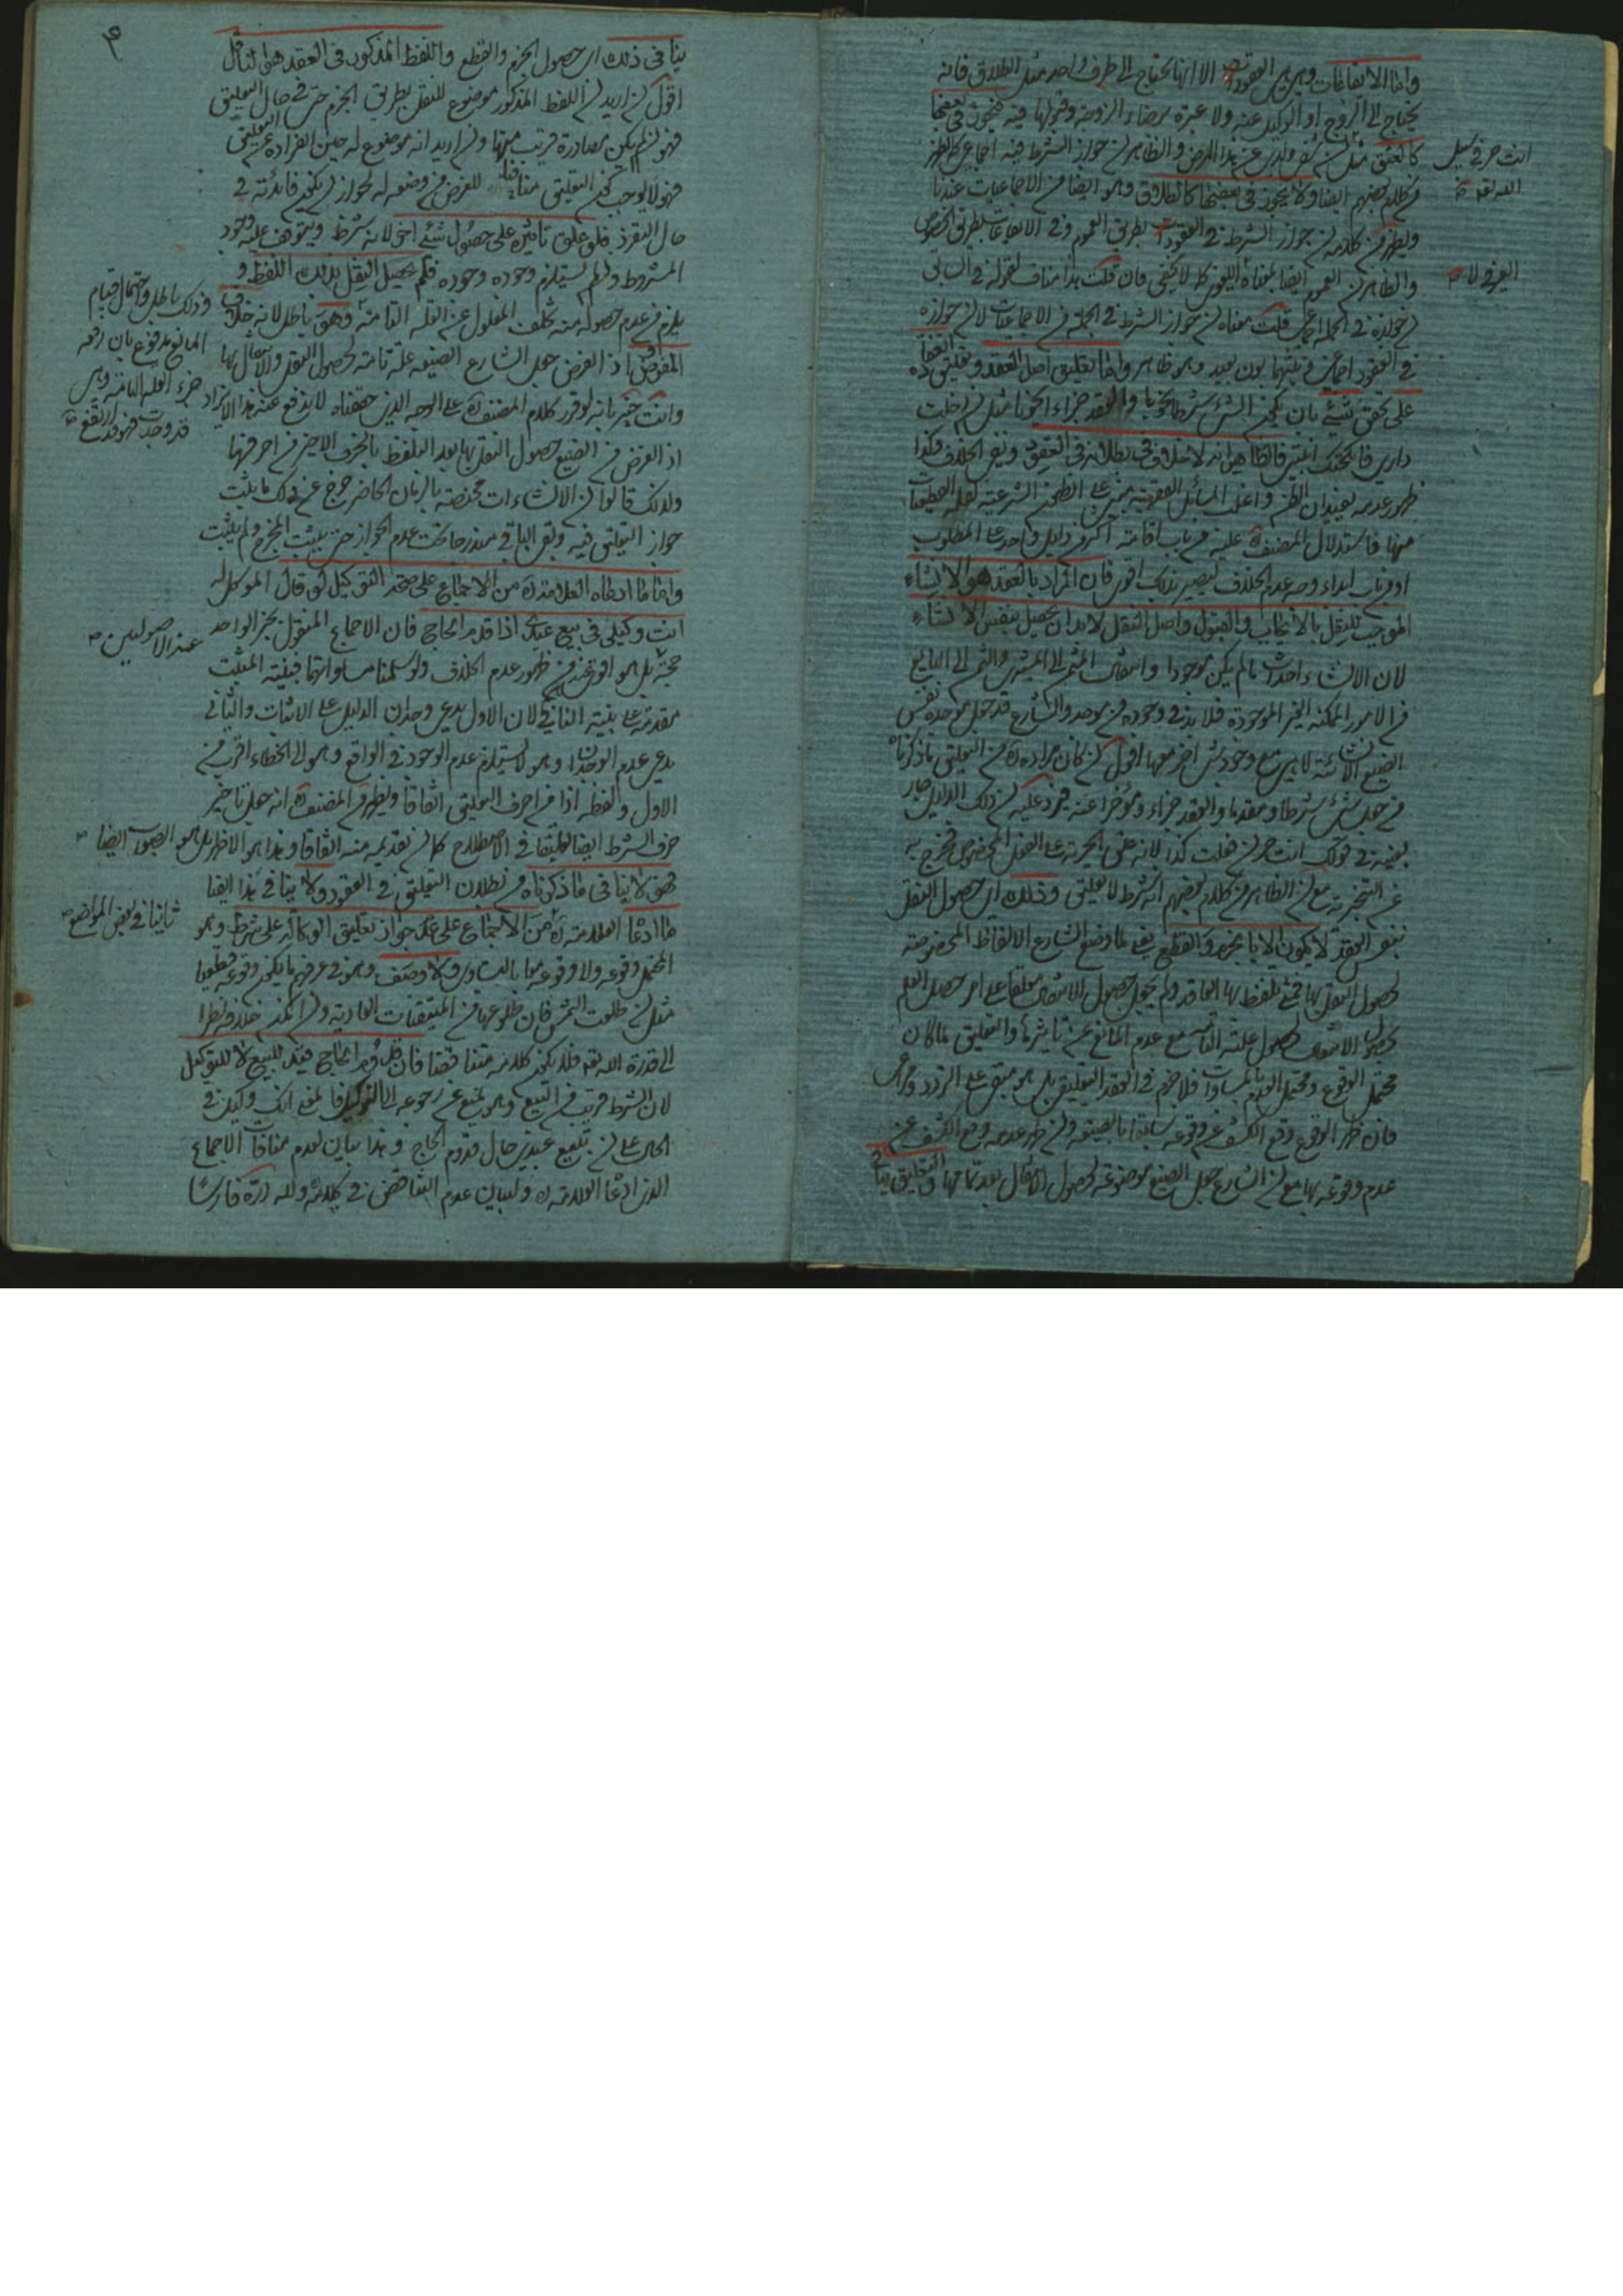 واما الايقاعات وهي العقود الا انها تحتاج الى طرف واحد مثل الطلاق فانه
يحتاج الى الزوج او الوكيل عنه ولا عبرة برضاء الزوجة وقبولها فيه فيجوز في بعضها
كالعتق مثل ان شفي ولدي من هذا المرض والظاهر ان جواز الشرط فيه اجماعي كما يظهر
انت حر في سبيل
الله تعالى
من كلام بعضهم ايضا ولا يجوز في بعضها كالطلاق وهو ايضا من الاجماعيات عندنا
ويظهر من كلامه ان جواز الشرط في العقود بطريق العموم وفي الايقاعات بطريق الخصوص
والظاهر ان العموم ايضا بمعناه اللغوي لا يخفى فان قلت هذا مناف لقوله في السابق
ان جوازه في الجملة اجماعي قلت معناه ان جواز الشرط في الجملة من الاجماعيات لا ان جوازه
في العقود اجماعي وبينهما بون بعيد وهو ظاهر واما تعليق اصل العقد
على تحقق شيء بان يكون الشيء شرطا نحويا والعقد جزاء نحويا مثل ان دخلت
داري فانكحتك ابنتي فالظاهر انه لا خلاف في بطلانه في العقود ونفي الخلاف وكذا
ظهور عدمه يفيدان الظن واغلب المسائل الفقهية مبني على الظنون الشرعية لقلة القطعيات
منها فاستدلال المصنف عليه من باب اقامة اكثر من دليل واحد على المطلوب
او من باب ابداء وجه عدم الخلاف ليصير بذلك اقوى فان المراد بالعقد هو الانشاء
الموجب للنقل بالايجاب والقبول واصل النقل لابد ان يحصل بنفس الانشاء
لان الانشاء احداث ما لم يكن موجودا وانتقال المثمن الى المشتري والثمن الى البايع
من الامور الممكنة الغير الموجودة فلابد في وجوده من موجد والشارع قد جعل موجده نفس
الصيغ الانشائية لا هي مع وجود شيء اخر معها اقول ان كان مراده من التعليق ما ذكرناه
من جعل شيء شرطا ومقدما والعقد جزاء ومؤخرا عنه فيرد عليه ان ذلك الدليل جار
بعينه في قولك انت حر ان فعلت كذا لانه علق الحرية على الفعل المخصوص فخرج به
عن التنجيزية مع ان الظاهر من كلام بعضهم انه شرط لا تعليق وذلك اي حصول النقل
بنفس العقد لا يكون الا بالجزم والقطع يعني لما وضع الشارع الالفاظ المخصوصة
لحصول النقل بها فمتى تلفظ بها العاقد ولم يجعل حصول الانتقال معلقا على امر حصل العلم
بحصول الانتقال لحصول علته التامة مع عدم المانع عن تاثيرها والتعليق لما كان
محتمل الوقوع ومحتمل العدم بالمساوات فلا جزم في العقد التعليقي بل هو مبني على التردد
فان ظهر الوقوع وقع الكشف عن وقوعه سابقا بالصيغة وان ظهر عدمه وقع الكشف عن
عدم وقوعه بها مع ان الشارع جعل الصيغ موضوعة لحصول الانتقال بعد تمامها والتعليق
ينافي ذلك اي حصول الجزم والقطع واللفظ المذكور في العقد هو الناقل
اقول ان اريد ان اللفظ المذكور موضوع للنقل بطريق الجزم حتى في حال التعليق
فهو ان لم يكن مصادرة قريب منها وان اريد انه موضوع له حين انفراده عن التعليق
فهو لا يوجب كون التعليق منافيا للغرض من وضعه له لجواز ان يكون فائدته في
حال التفرد فلو علق تاثيره على حصول شيء اخر لانه شرط ويتوقف عليه وجود
المشروط وان لم يستلزم وجوده وجوده فلم يحصل النقل بذلك اللفظ و
يلزم من عدم حصوله منه تخلف المعلول عن العلة التامة وهو باطل لانه خلاف
وذلك باطل واحتمال قيام
المانع مدفوع بان رفعه
جزء العلة التامة وهي
قد وجدت فهو قد ارتفع
المفروض اذ الفرض جعل الشارع الصيغة علة تامة لحصول النقل والانتقال بها
وانت خبير بانه لو قرر كلام المصنف على الوجه الذي حققناه لا يدفع عنه هذا الايراد
اذ الغرض من الصيغ حصول النقل بها بعد التلفظ بالحرف الاخير من احرفها
ولذلك قالوا ان الانشاءات مختصة بالزمان الحاضر خرج عن ذلك ما يثبت
جواز التعليق فيه وبقي الباقي مندرجا تحت عدم الجواز حتى يثبت المخرج ولم يثبت
واما ما ادعاه العلامة من الاجماع على صحة التوكيل لو قال الموكل له
انت وكيلي في بيع عبدي اذا قدم الحاج فان الاجماع المنقول بخبر الواحد
عند الاصوليين
حجة بل هو اقوى من ظهور عدم الخلاف ولو سلمنا مساواتهما فبينة المثبت
مقدمة على بينة النافي لان الاول يدعي وجدان الدليل على الاثبات والثاني
يدعي عدم الوجدان وهو لا يستلزم عدم الوجود في الواقع وهو الى الخطاء اقرب من
الاول ولفظه اذا من احرف التعليق اتفاقا ويظهر من المصنف انه جعل تاخير
حرف الشرط ايضا تعليقا في الاصطلاح كما ان تقديمه منه اتفاقا وهذا هو الاظهر بل هو الصواب ايضا
فهو لا ينافي ما ذكرناه من بطلان التعليق في العقود ولا ينافي هذا ايضا
ثانيا في بعض المواضع
ما ادعا العلامة من الاجماع على عدم جواز تعليق الوكالة على شرط وهو
المحتمل وقوعه ولا وقوعه معا بالتساوي ولا وصف وهو في عرفهم ما يكون وقوعه قطعيا
مثل ان طلعت الشمس فان طلوعها من المتيقنات العادية وان امكن خلافه نظرا
الى قدرة الله تعالى فلا يكون كلامه متناقضا فان قدوم الحاج قيد للبيع لا للتوكيل
لان الشرط قريب من البيع وهو يمنع عن رجوعه الى التوكيل فالمعنى انك وكيلي في
الحال على ان تبيع عبدي حال قدوم الحاج وهذا بيان لعدم منافات الاجماع
الذي ادعا العلامة ولبيان عدم التناقض في كلامه ولله دره فارسا